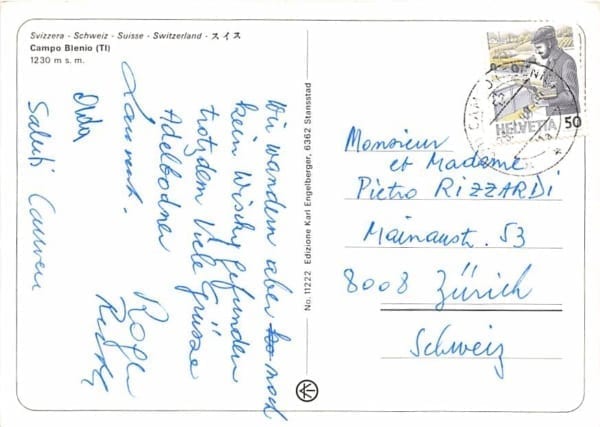 Svizzera - Schweiz - Suisse - Switzerland - スイス
Campo Blenio (TI)
1230 m s. m.
Wir wandern aber noch
kein Wisch gefunden
trotzdem Viele Grüsse
Adelbodner
Laurent.
Roger
Saluti Carmen
No. 11222 Edizione Karl Engelberger, 6362 Stansstad
HELVETIA 50
Monsieur
et Madame
Pietro RIZZARDI
Mainaustr. 53
8008 Zürich
Schweiz